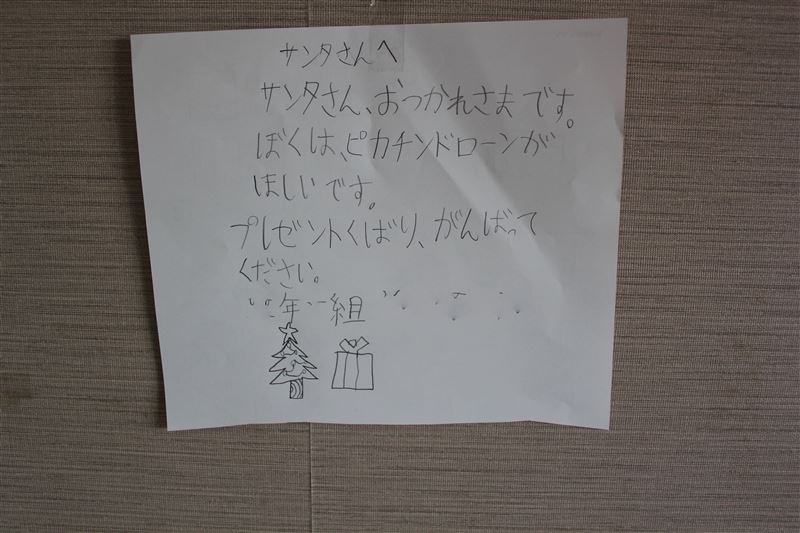 サンタさんへ
サンタさん、おつかれさまです。
ぼくは、ピカチンドローンが
ほしいです。
プレゼントくばり、がんばって
ください。
年 組